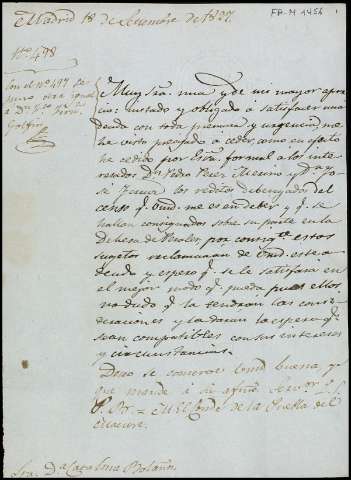 Madrid 18 de Diciembre de 1827.
FP-M 1456
Nº 498
Con el nº 497 se
Muy Sra. mia y de mi mayor apre-
cio: instado y obligado á satisfacer una
deuda con toda premura y urgencia, me
he visto precisado a ceder como en efecto
he cedido por Escra. formal a los inte-
resados Dn. Pedro Perez Moreno y Dn.
los reditos debengados del
censo q. Vmd. me es en deber y q. se
hallan consignados sobre su parte en la
Dehesa de por consigte. estos
sugetos reclamaran de Vmd. este a-
deudo y espero q. se le satisfará en
el mejor modo q. pueda pues ellos
no dudo q. la tendran las consi-
deraciones y la daran la espera q.
sean compatibles con sus intereses
y circunstancias.
Deseo se conserve Vmd. buena, y
que mande á su afmo. Servor. q.
B. = El Conde de la Puebla del
Maestre.
Sra. Da. Catalina Bolaños